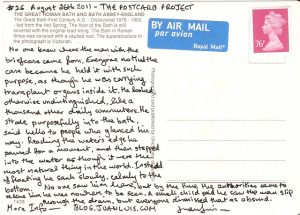 #26 August 26th 2011 - THE POSTCARD PROJECT
THE GREAT ROMAN BATH AND BATH ABBEY-ENGLAND
The Great Bath-First Century A.D. (discovered 1878 - 1880)
is fed from the Hot Spring. The floor of the Bath is still
covered with the original lead lining. The Bath in Roman
times was covered with a vaulted roof. The superstructure in
the photograph is Victorian.
BY AIR MAIL
par avion
Royal Mail
76P
No one knew where the man with the
briefcase came from. Everyone noticed the
case because he held it with such
purpose, as though he was carrying
transplant organs inside it. He looked
otherwise undistinguished, like a
thousand other daily commuters. He
strode purposefully into the bath,
said hello to people who glanced his
way. Reaching the water's edge he
paused for a moment, and then stepped
into the water as though it were the
most natural thing in the world. Instead
of floating he sank slowly, calmly to the
bottom. No one saw him leave, but by the time the authorities came to
rescue him he was nowhere to be seen. A small child said he saw the man slip
through the drain, but everyone dismissed that as absurd.
More Info - BLOG.JUANLOIS.COM